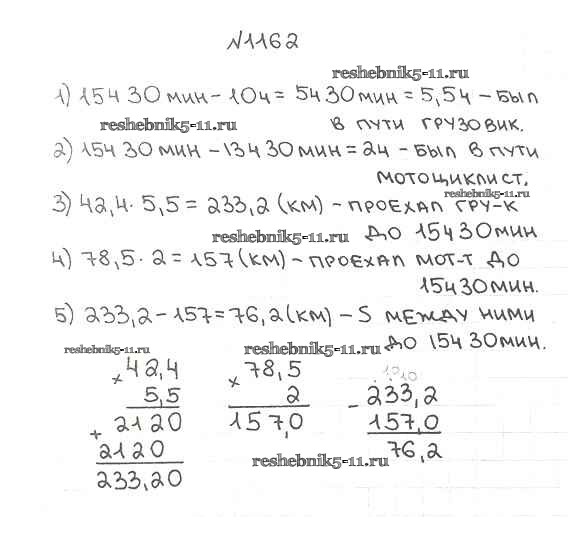 №1162
reshebnik5-11.ru
1) 15ч 30 мин - 10ч = 5ч 30 мин = 5,5ч - был
reshebnik5-11.ru
в пути грузовик.
2) 15ч 30 мин - 13ч 30 мин = 2ч - был в пути
мотоциклист.
reshebnik5-11.ru
3) 42,4 · 5,5 = 233,2 (км) - проехал гру-к
reshebnik5-11.ru
до 15ч 30 мин
4) 78,5 · 2 = 157 (км) - проехал мот-т до
15ч 30 мин.
5) 233,2 - 157 = 76,2 (км) - S между ними
до 15ч 30 мин.
reshebnik5-11.ru reshebnik5-11.ru
× 42,4 × 78,5 10 10
5,5 2 - 233,2
+ 2120 157,0 157,0
2120 76,2
233,20 reshebnik5-11.ru